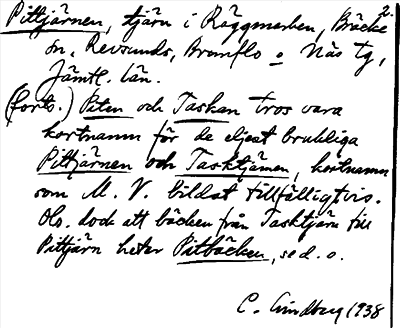 2.
Pittjärnen, tjärn i Räggmarken, Bräcke
sn, Revsunds, Brunflo o Näs tg,
Jämtl. län.
(Forts.) Piten och Taskan tros vara
kortnamn för de eljest brukliga
Pittjärnen och Tasktjärnen, kortnamn
som M. V. bildat tillfälligtvis.
Obs. dock att bäcken från Tasktjärn till
Pittjärn heter Pitbäcken, se d. o.
C. Lindberg 1938